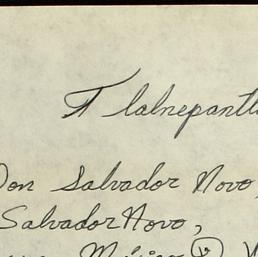 Tlalnepantl
Don Salvador Novo,
Salvador Novo,
México